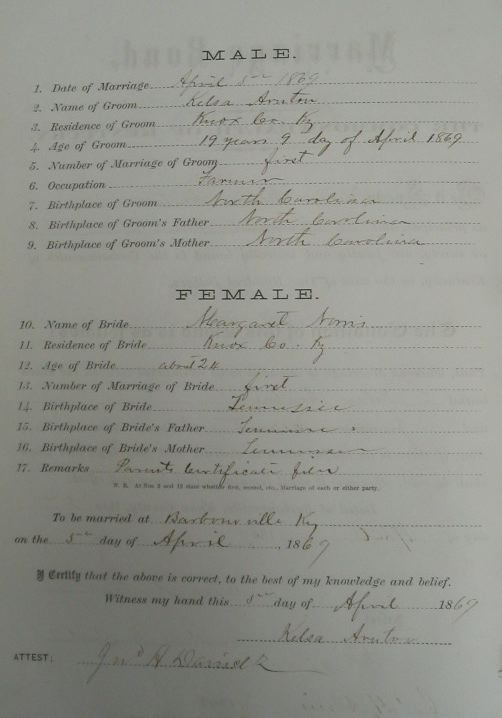 MALE.
1. Date of Marriage April 5th 1869
2. Name of Groom Kelsa
3. Residence of Groom Knox Co. Ky
4. Age of Groom 19 years 9 day of April 1869
5. Number of Marriage of Groom first
6. Occupation Farmer
7. Birthplace of Groom North Carolina
8. Birthplace of Groom's Father North Carolina
9. Birthplace of Groom's Mother North Carolina
FEMALE.
10. Name of Bride Margaret Norris
11. Residence of Bride Knox Co. Ky
12. Age of Bride about 24
13. Number of Marriage of Bride first
14. Birthplace of Bride Tennessee
15. Birthplace of Bride's Father Tennessee
16. Birthplace of Bride's Mother Tennessee
17. Remarks Parents Certificate
N. B. At Nos 5 and 13 state whether first, second, etc., Marriage of each or either party.
To be married at Barbourville Ky
on the 5th day of April, 1869
I Certify that the above is correct, to the best of my knowledge and belief.
Witness my hand this 5th day of April 1869
Kelsa
ATTEST: